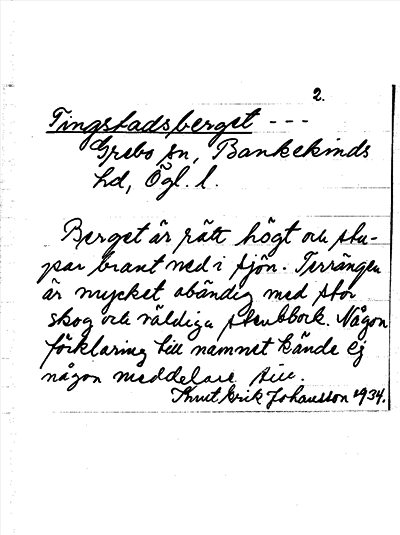 2.
Tingstadsberget - - -
Grebo sn, Bankekinds
hd, Ögl. l.
Berget är rätt högt och stu-
par brant ned i sjön. Terrängen
är mycket obändig med stor
skog och väldiga stenblock. Någon
förklaring till namnet kände ej
någon meddelare till.
Knut Erik Johansson 1934.